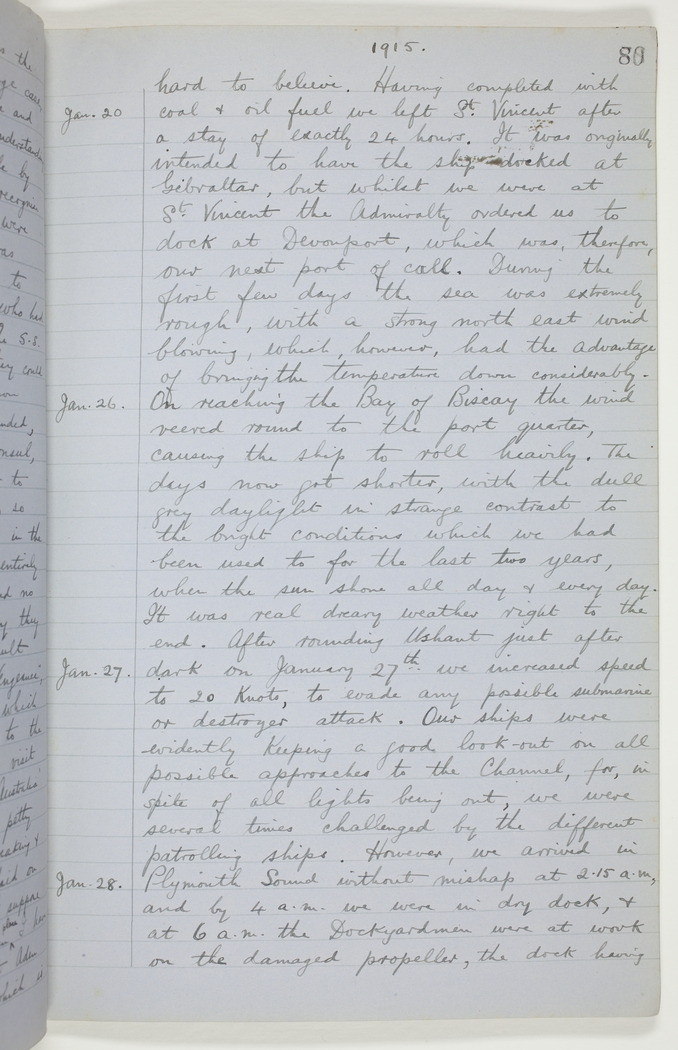 1915.
80
hard to believe. Having completed with
Jan. 20 coal & oil fuel we left St. Vincent after
a stay of exactly 24 hours. It was originally
intended to have the ship docked at
Gibraltar, but whilst we were at
St. Vincent the Admiralty ordered us to
dock at Devonport, which was, therefore,
our next port of call. During the
first few days the sea was extremely
rough, with a strong north east wind
blowing, which, however, had the advantage
of bringing the temperature down considerably.
Jan. 26. On reaching the Bay of Biscay the wind
veered round to the port quarter,
causing the ship to roll heavily. The
days now got shorter, with the dull
grey daylight in strange contrast to
the bright conditions which we had
been used to for the last two years,
when the sun shone all day & every day.
It was real dreary weather right to the
end. After rounding Ushant just after
Jan. 27. dark on January 27th we increased speed
to 20 Knots, to evade any possible submarine
or destroyer attack. Our ships were
evidently Keeping a good look-out on all
possible approaches to the Channel, for, in
spite of all lights being out, we were
several times challenged by the different
patrolling ships. However, we arrived in
Jan. 28. Plymouth Sound without mishap at 2.15 a.m.,
and by 4 a.m. we were in dry dock, &
at 6 a.m. the Dockyardmen were at work
on the damaged propeller, the dock having